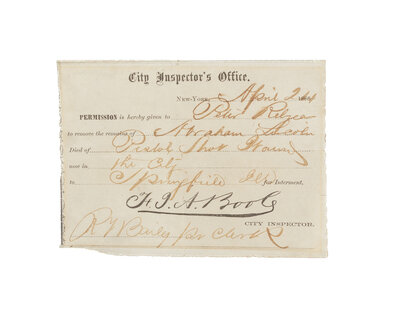 City Inspector's Office.
New-York, April 24
PERMISSION is hereby given to Peter Relyea
to remove the remains of Abraham Lincoln
Died of Pistol Shot Wound
now in the City
to Springfield Ill for Interment.
F. I. A. Boole
CITY INSPECTOR.
Clerk